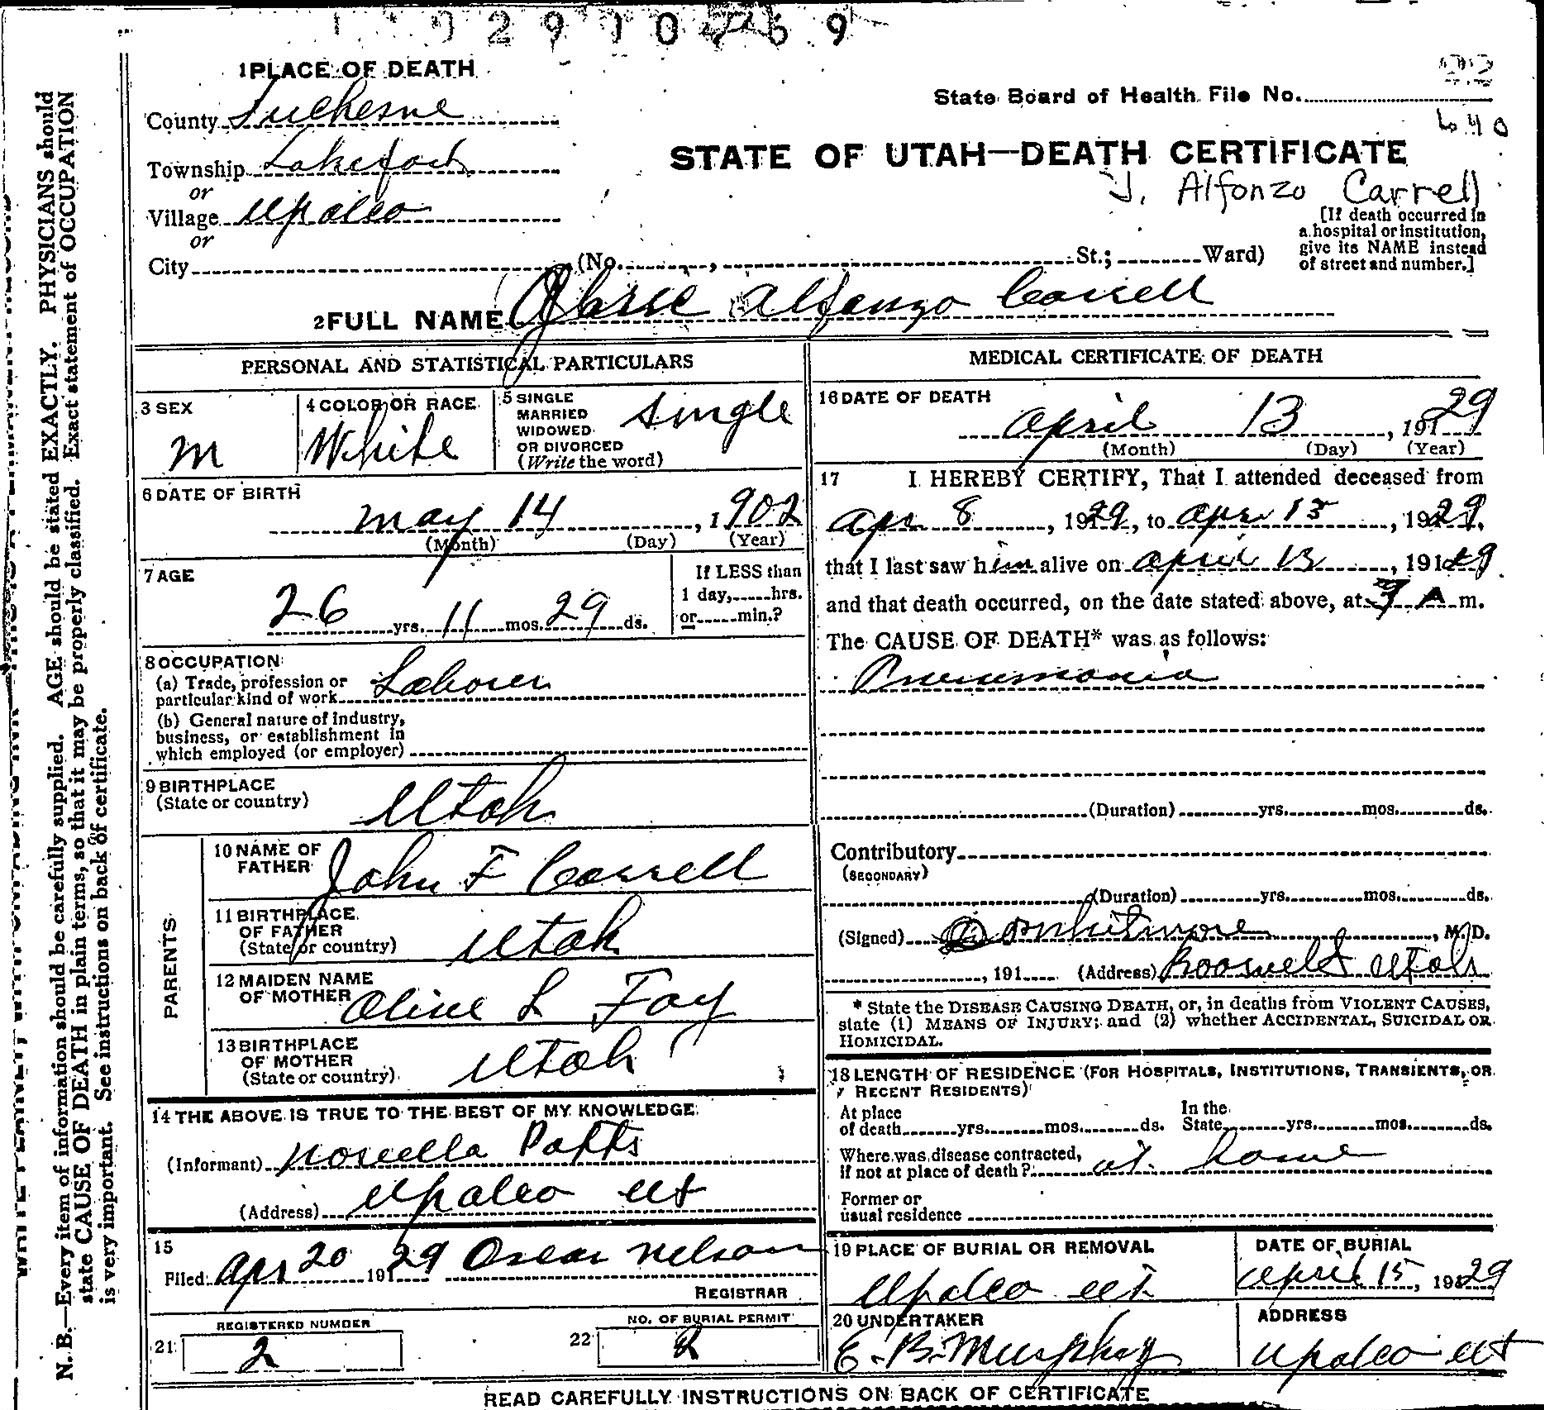 1 PLACE OF DEATH
County Duchesne
Township Lakefork
or
Village Upalco
or
City (No. , St.; Ward)
State Board of Health File No.
640
STATE OF UTAH—DEATH CERTIFICATE
J. Alfonzo Carrell
[If death occurred in
a hospital or institution,
give its NAME instead
of street and number.]
2 FULL NAME Alfonzo Carrell
PERSONAL AND STATISTICAL PARTICULARS
3 SEX
M
4 COLOR OR RACE
White
5 SINGLE
MARRIED
WIDOWED
OR DIVORCED
(Write the word)
Single
6 DATE OF BIRTH
May 14, 1902
(Month) (Day) (Year)
7 AGE
26 yrs. 11 mos. 29 ds.
If LESS than
1 day, hrs.
or min.?
8 OCCUPATION
(a) Trade, profession or
particular kind of work Laborer
(b) General nature of industry,
business, or establishment in
which employed (or employer)
9 BIRTHPLACE
(State or country)
Utah
PARENTS
10 NAME OF
FATHER John F Carrell
11 BIRTHPLACE
OF FATHER
(State or country) Utah
12 MAIDEN NAME
OF MOTHER Olive L Foy
13 BIRTHPLACE
OF MOTHER
(State or country) Utah
14 THE ABOVE IS TRUE TO THE BEST OF MY KNOWLEDGE
(Informant) Potts
(Address) Upalco Ut
15
Filed Apr 20 1929 Oscar Nelson
REGISTRAR
REGISTERED NUMBER
21 2
NO. OF BURIAL PERMIT
22 2
MEDICAL CERTIFICATE OF DEATH
16 DATE OF DEATH
April 13, 1929
(Month) (Day) (Year)
17 I HEREBY CERTIFY, That I attended deceased from
Apr 8, 1929, to Apr 13, 1929,
that I last saw him alive on April 13, 1929
and that death occurred, on the date stated above, at A m.
The CAUSE OF DEATH* was as follows:
Pneumonia
(Duration) yrs. mos. ds.
Contributory
(SECONDARY)
(Duration) yrs. mos. ds.
(Signed) Whitmore, M.D.
, 191 (Address) Roosevelt Utah
* State the DISEASE CAUSING DEATH, or, in deaths from VIOLENT CAUSES,
state (1) MEANS OF INJURY; and (2) whether ACCIDENTAL, SUICIDAL OR
HOMICIDAL.
18 LENGTH OF RESIDENCE (FOR HOSPITALS, INSTITUTIONS, TRANSIENTS, OR
RECENT RESIDENTS)
At place
of death yrs. mos. ds.
In the
State yrs. mos. ds.
Where was disease contracted,
if not at place of death? at home
Former or
usual residence
19 PLACE OF BURIAL OR REMOVAL
Upalco Ut
DATE OF BURIAL
April 15, 1929
20 UNDERTAKER
E. B. Murphy
ADDRESS
Upalco Ut
READ CAREFULLY INSTRUCTIONS ON BACK OF CERTIFICATE
N. B.—Every item of information should be carefully supplied. AGE should be stated EXACTLY. PHYSICIANS should
state CAUSE OF DEATH in plain terms, so that it may be properly classified. Exact statement of OCCUPATION
is very important. See instructions on back of certificate.